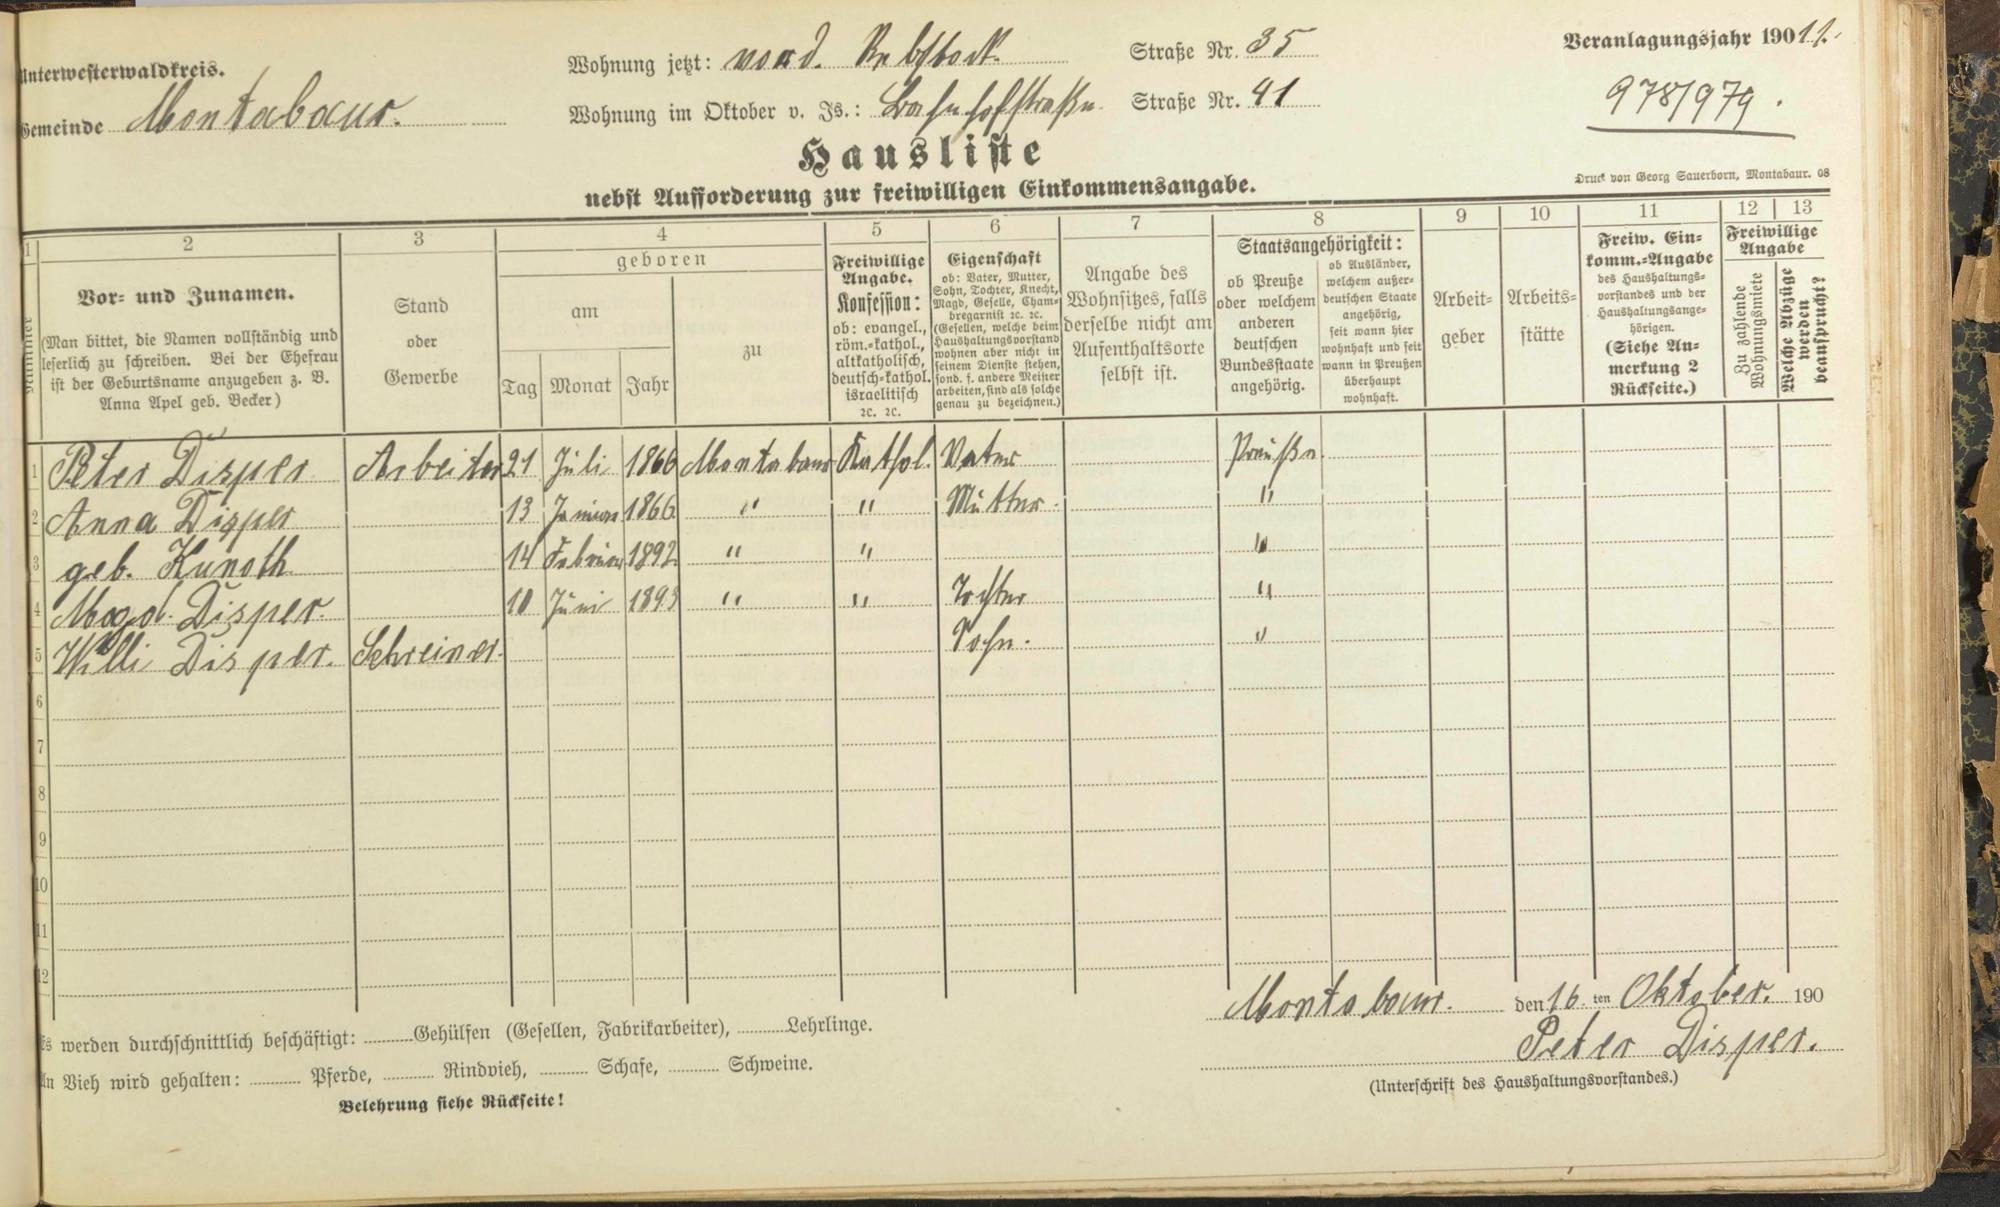 Unterwesterwaldkreis.
Gemeinde Montabaur.
Wohnung jetzt: vord. Rebstock. Straße Nr. 35
Wohnung im Oktober v. Js.: Bahnhofstraße Straße Nr. 41
Veranlagungsjahr 190 11.
978/979.
Hausliste
nebst Aufforderung zur freiwilligen Einkommensangabe.
Druck von Georg Sauerborn, Montabaur. 08
1 2 3 4 5 6 7 8 9 10 11 12 13
Nummer
Vor- und Zunamen.
(Man bittet, die Namen vollständig und
leserlich zu schreiben. Bei der Ehefrau
ist der Geburtsname anzugeben z. B.
Anna Apel geb. Becker)
Stand
oder
Gewerbe
geboren
am
Tag Monat Jahr
zu
Freiwillige
Angabe.
Konfession:
ob: evangel.,
röm.-kathol.,
altkatholisch,
deutsch-kathol.
israelitisch
ꝛc. ꝛc.
Eigenschaft
ob: Vater, Mutter,
Sohn, Tochter, Knecht,
Magd, Geselle, Cham-
bregarnist ꝛc. ꝛc.
(Gesellen, welche beim
Haushaltungsvorstand
wohnen aber nicht in
seinem Dienste stehen,
sond. f. andere Meister
arbeiten, sind als solche
genau zu bezeichnen.)
Angabe des
Wohnsitzes, falls
derselbe nicht am
Aufenthaltsorte
selbst ist.
Staatsangehörigkeit:
ob Preuße
oder welchem
anderen
deutschen
Bundesstaate
angehörig.
ob Ausländer,
welchem außer-
deutschen Staate
angehörig,
seit wann hier
wohnhaft und seit
wann in Preußen
überhaupt
wohnhaft.
Arbeit-
geber
Arbeits-
stätte
Freiw. Ein-
komm.-Angabe
des Haushaltungs-
vorstandes und der
Haushaltungsange-
hörigen.
(Siehe An-
merkung 2
Rückseite.)
Freiwillige
Angabe
Zu zahlende
Wohnungsmiete
Welche Abzüge
werden
beansprucht?
1 Peter Disper Arbeiter 21 Juli 1866 Montabaur Kathol. Vater Preuße.
2 Anna Disper 13 Januar 1866 " " Mutter. "
3 geb. Kunoth 14 Februar 1892 " " "
4 Magd. Disper. 10 Juni 1893 " " Tochter "
5 Willi Disper. Schreiner. Sohn. "
6
7
8
9
10
11
12
Montabaur. den 16. ten Oktober. 190
Peter Disper.
(Unterschrift des Haushaltungsvorstandes.)
Es werden durchschnittlich beschäftigt: Gehülfen (Gesellen, Fabrikarbeiter), Lehrlinge.
An Vieh wird gehalten: Pferde, Rindvieh, Schafe, Schweine.
Belehrung siehe Rückseite!